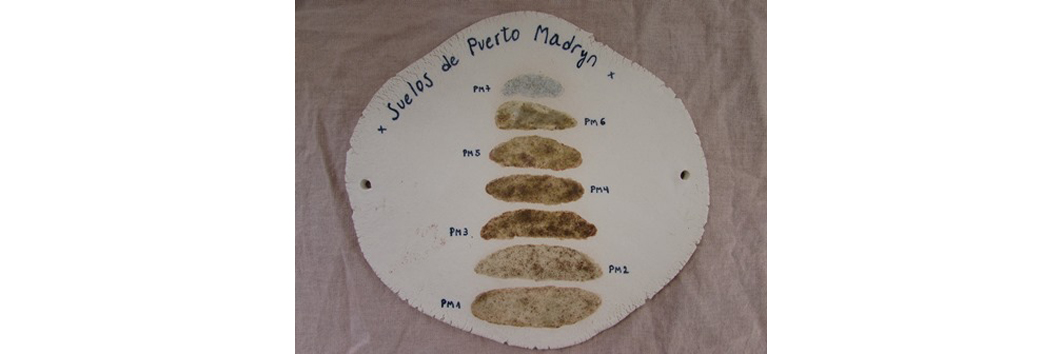 x Suelos de Puerto Madryn x
PM7
PM6
PM5
PM4
PM3.
PM2
PM1